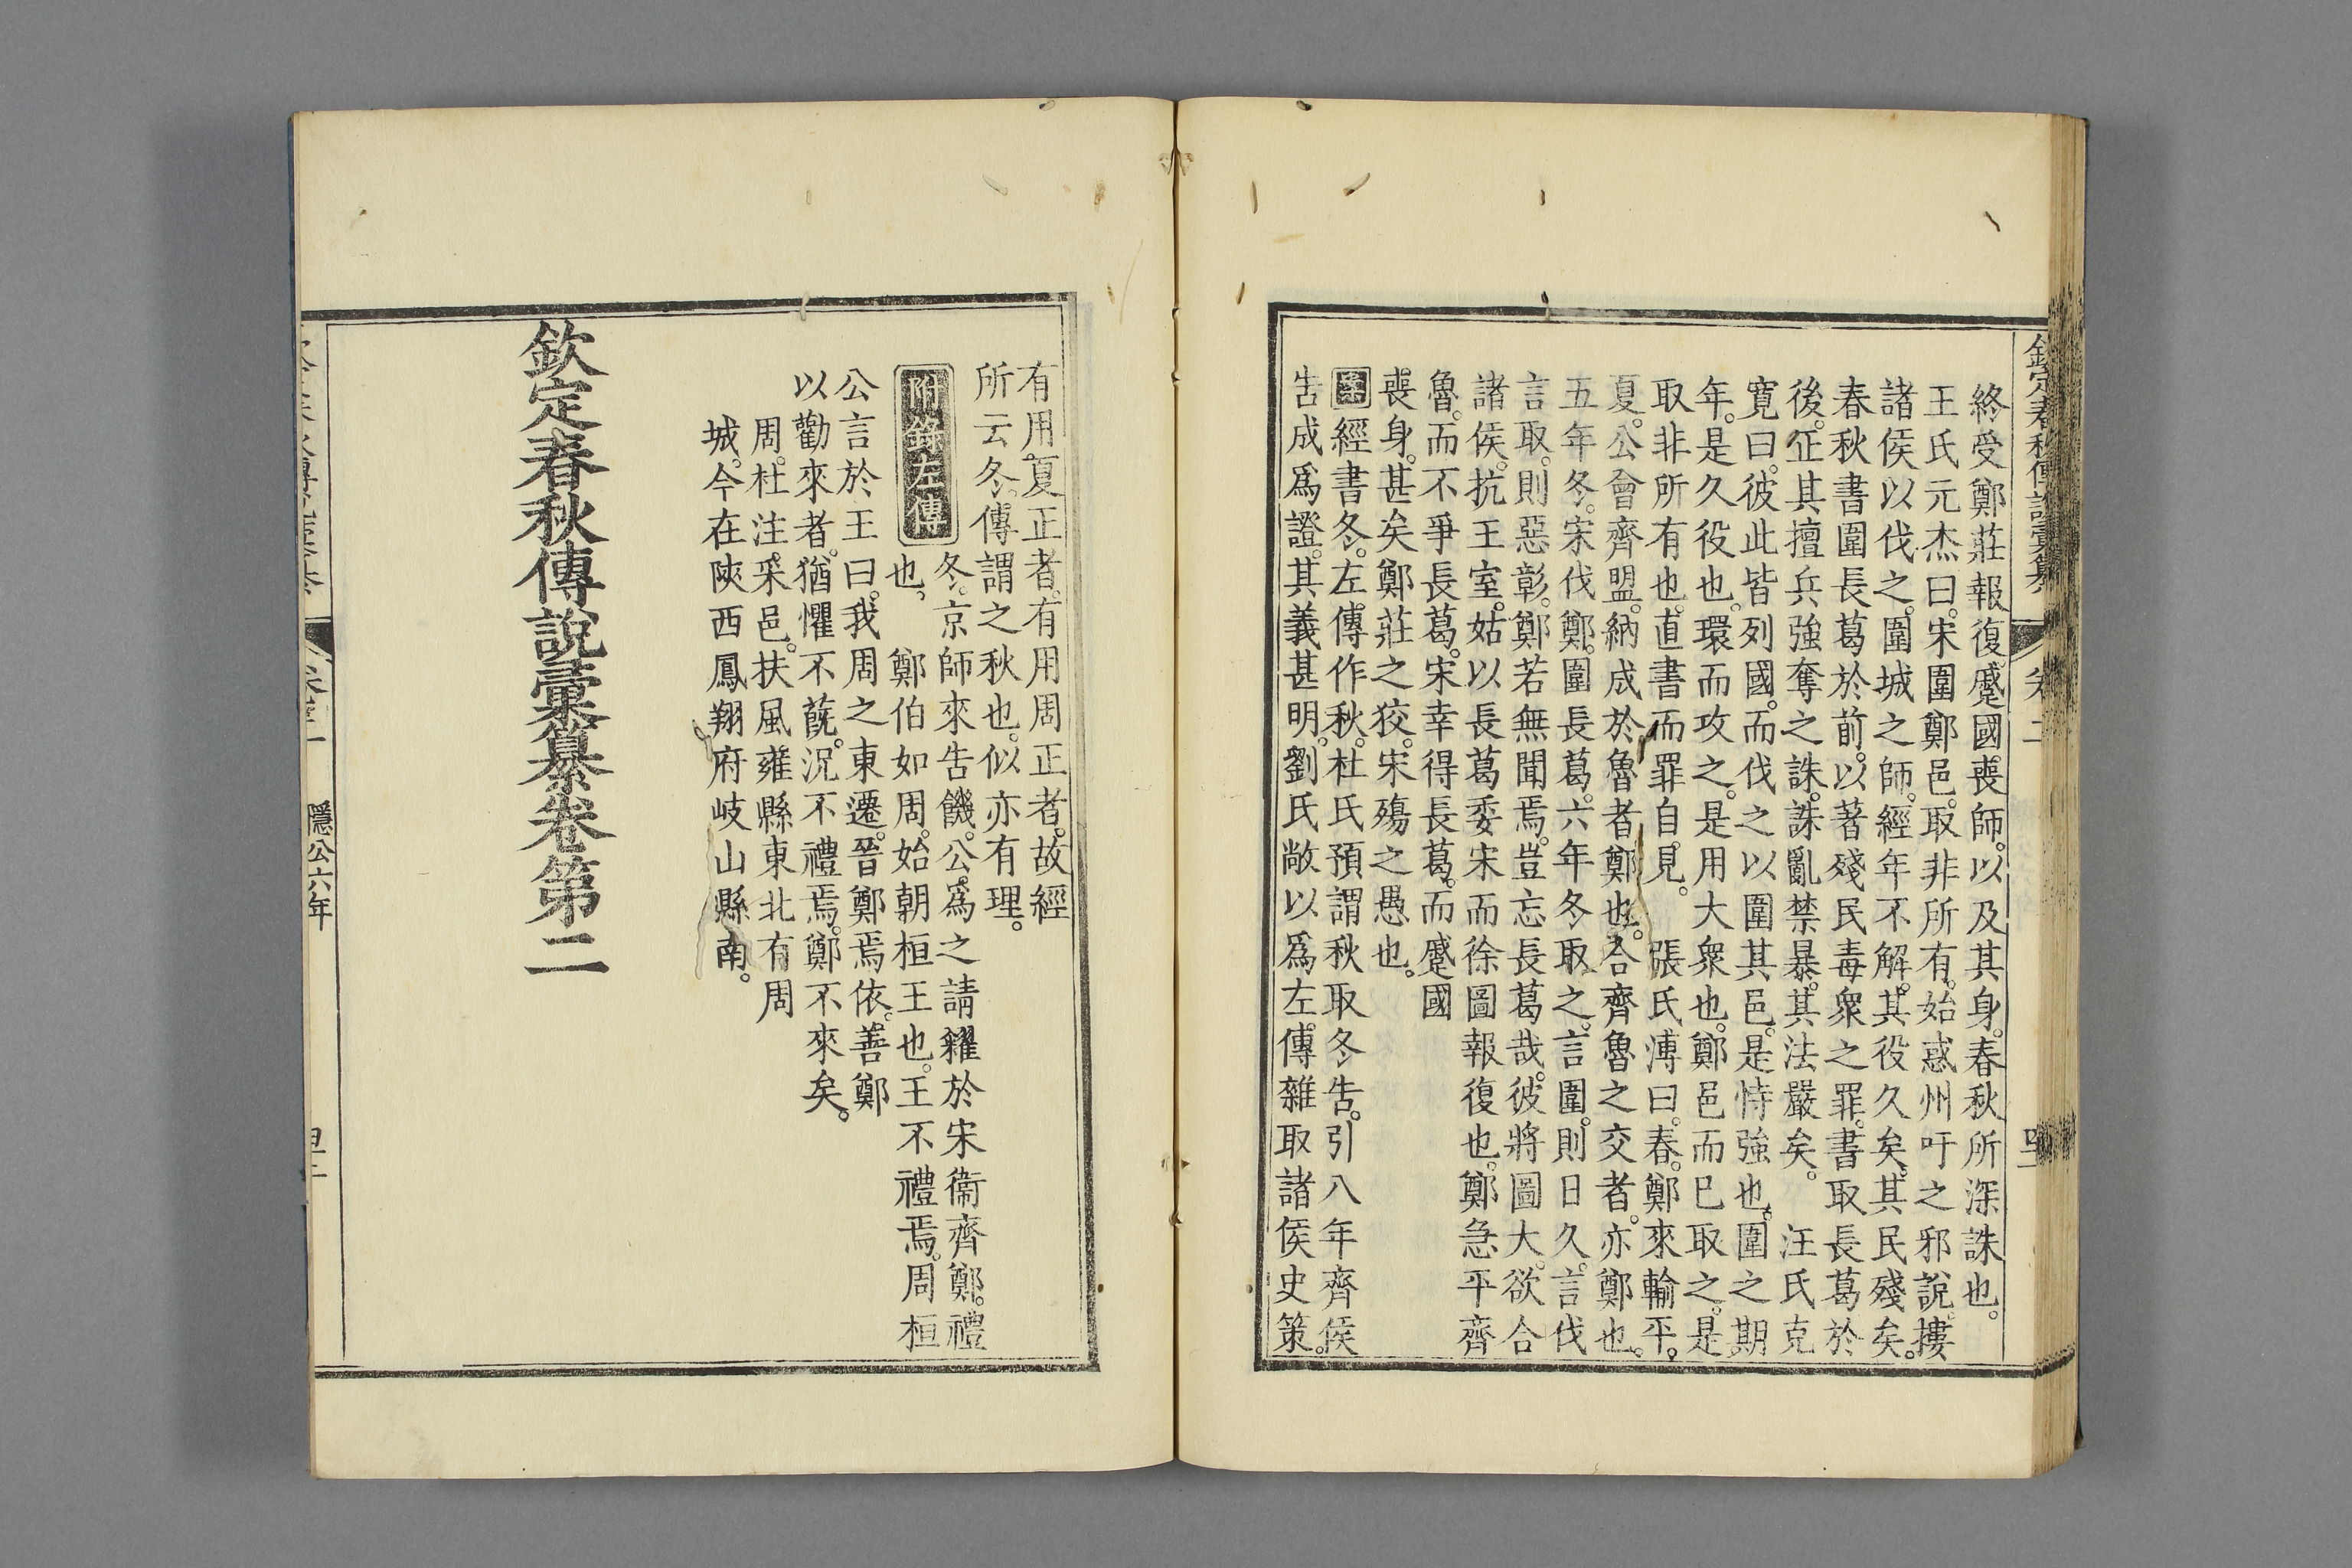 欽定春秋傳說彙纂 卷二
終受鄭莊報復蹙國喪師。以及其身。春秋所深誅也。
王氏元杰曰。宋圍鄭邑。取非所有。始惑州吁之邪說。摟
諸侯以伐之。圍城之師。經年不解。其役久矣。其民殘矣。
春秋書圍長葛於前。以著殘民毒衆之罪。書取長葛於
後。正其擅兵強奪之誅。誅亂禁暴。其法嚴矣。 汪氏克
寬曰。彼此皆列國。而伐之以圍其邑。是恃強也。圍之期
年。是久役也。環而攻之。是用大衆也。鄭邑而已取之。是
取非所有也。直書而罪自見。 張氏溥曰。春。鄭來輸平。
夏。公會齊盟。納成於魯者鄭也。合齊魯之交者。亦鄭也。
五年冬。宋伐鄭。圍長葛。六年冬取之。言圍。則日久。言伐
言取。則惡彰。鄭若無聞焉。豈忘長葛哉。彼將圖大。欲合
諸侯。抗王室。姑以長葛委宋而徐圖報復也。鄭急平齊
魯。而不爭長葛。宋幸得長葛。而蹙國
喪身。甚矣鄭莊之狡。宋殤之愚也。
案經書冬。左傳作秋。杜氏預謂秋取冬告。引八年齊侯
告成爲證。其義甚明。劉氏敞以爲左傳雜取諸侯史策。
有用夏正者。有用周正者。故經
所云冬。傳謂之秋也。似亦有理。
附錄左傳 冬。京師來告饑。公爲之請糴於宋衞齊鄭。禮
也。 鄭伯如周。始朝桓王也。王不禮焉。周桓
公言於王曰。我周之東遷。晉鄭焉依。善鄭
以勸來者。猶懼不蔇。況不禮焉。鄭不來矣。
周。杜注。采邑。扶風雍縣東北有周
城。今在陝西鳳翔府岐山縣南。
欽定春秋傳說彙纂卷第二
隱公六年